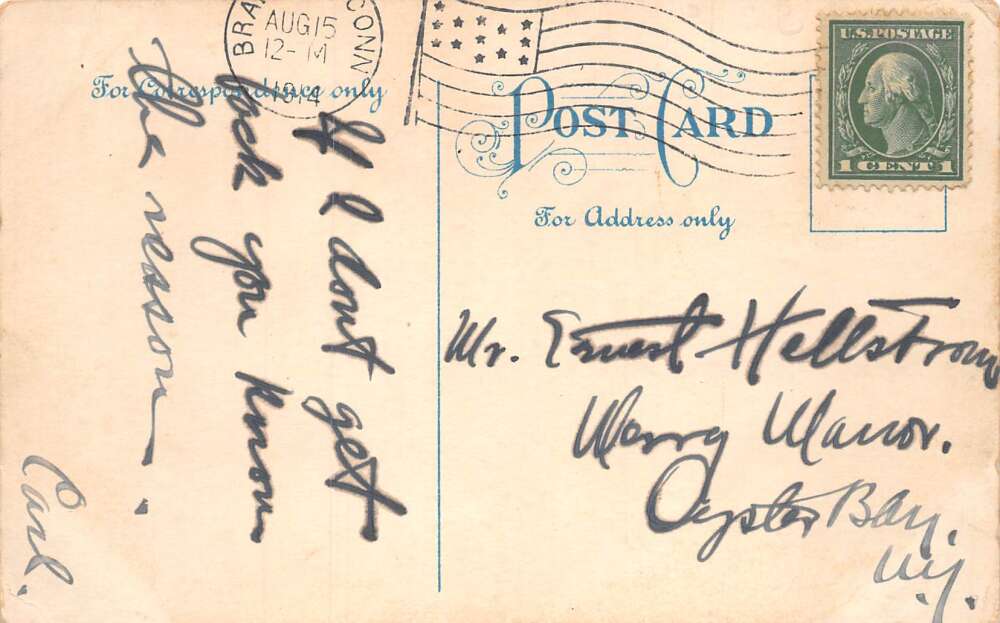 BRA CONN
AUG 15
12-M
1914
For Correspondence only
POST CARD
U.S. POSTAGE
1 CENT 1
For Address only
If I dont get
back you know
the reason.
Carl.
Mr. Ernest Hellstrom
Merry Manor.
Oyster Bay.
N.Y.